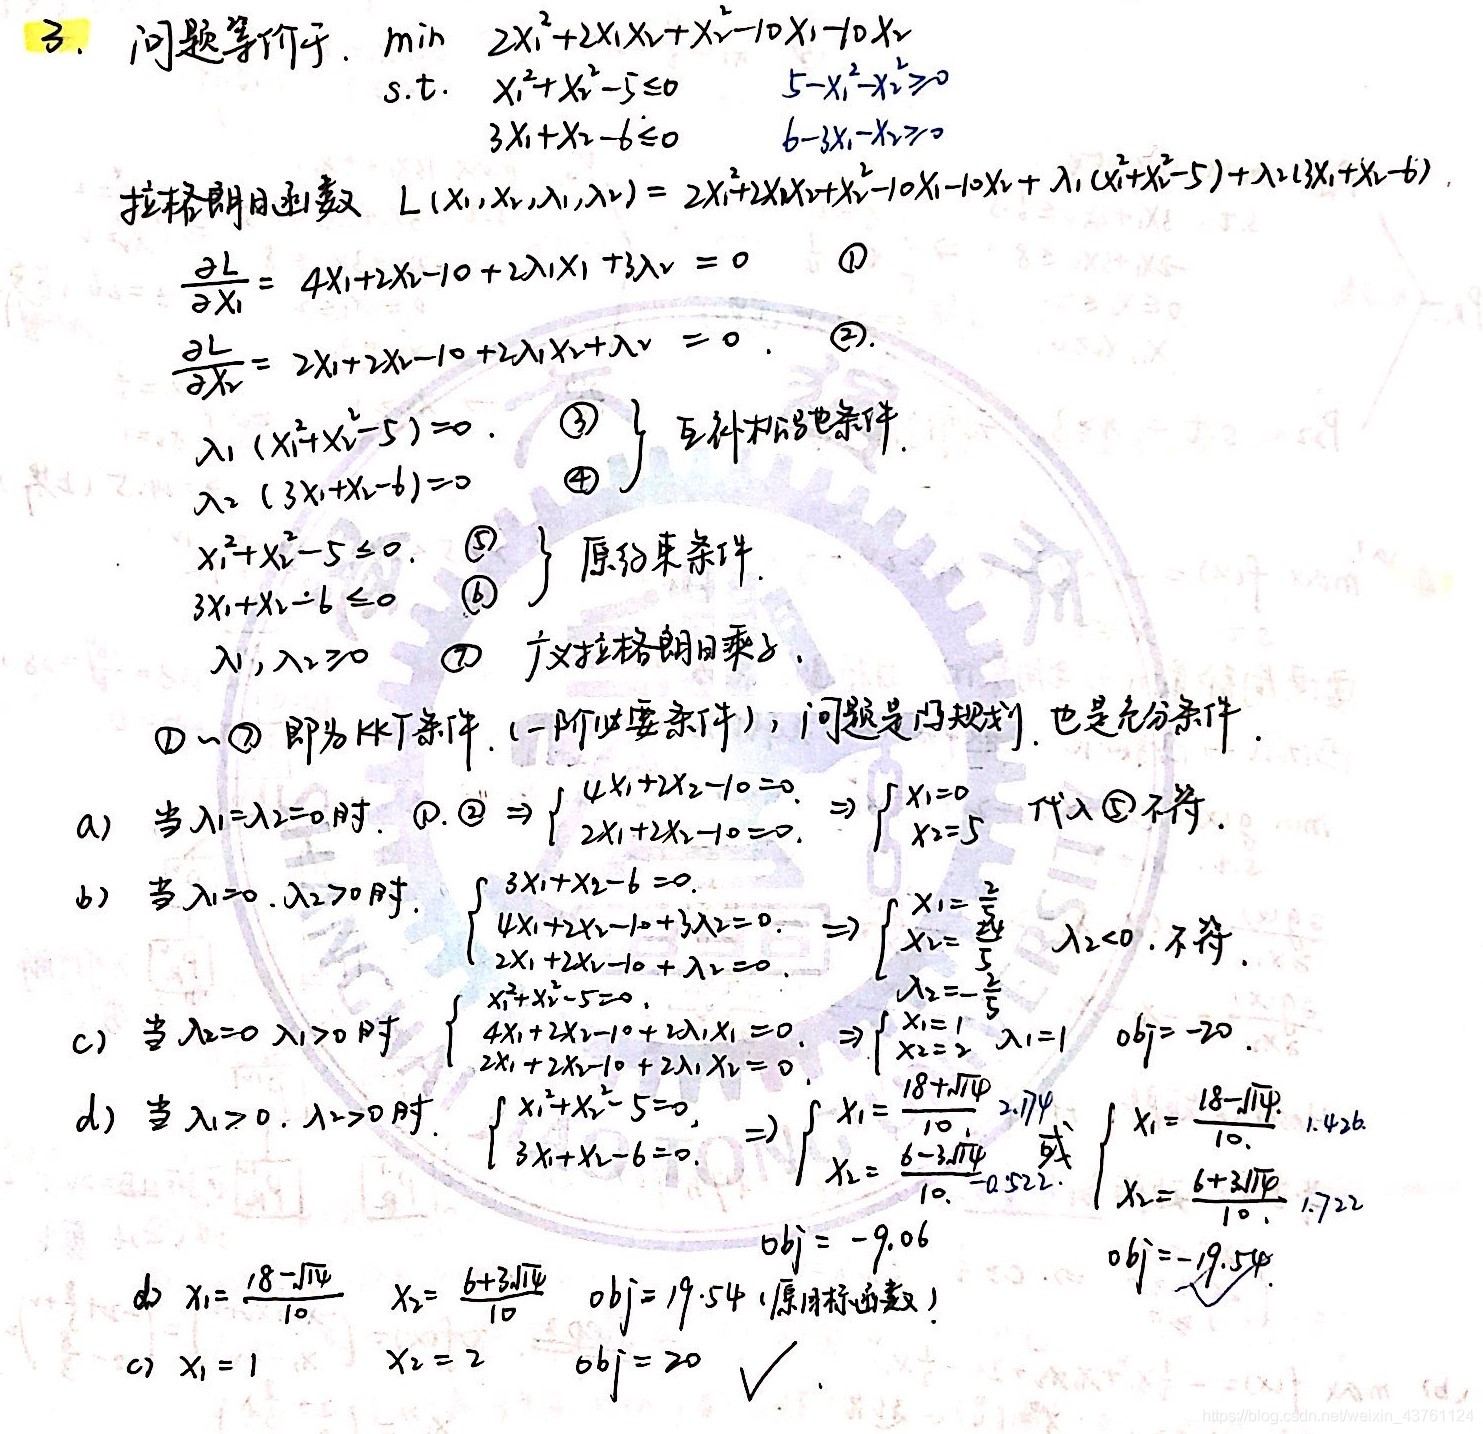 3. 问题等价于. min 2x₁²+2x₁x₂+x₂²-10x₁-10x₂
s.t. x₁²+x₂²-5≤0 5-x₁²-x₂²≥0
3x₁+x₂-6≤0 6-3x₁-x₂≥0
拉格朗日函数 L(x₁,x₂,λ₁,λ₂) = 2x₁²+2x₁x₂+x₂²-10x₁-10x₂+λ₁(x₁²+x₂²-5)+λ₂(3x₁+x₂-6).
∂L/∂x₁ = 4x₁+2x₂-10+2λ₁x₁+3λ₂ = 0 ①
∂L/∂x₂ = 2x₁+2x₂-10+2λ₁x₂+λ₂ = 0. ②.
λ₁(x₁²+x₂²-5)=0. ③ } 互补松弛条件.
λ₂(3x₁+x₂-6)=0 ④
x₁²+x₂²-5≤0. ⑤ } 原约束条件.
3x₁+x₂-6≤0 ⑥
λ₁,λ₂≥0 ⑦ 广义拉格朗日乘子.
①~⑦ 即为KKT条件.(一阶必要条件),问题是凸规划.也是充分条件.
a) 当λ₁=λ₂=0时. ①.② ⇒ { 4x₁+2x₂-10=0. 2x₁+2x₂-10=0. ⇒ { x₁=0 x₂=5 代入⑤不符.
b) 当λ₁=0.λ₂>0时. { 3x₁+x₂-6=0. 4x₁+2x₂-10+3λ₂=0. 2x₁+2x₂-10+λ₂=0. ⇒ { x₁=2/5 x₂=24/5 λ₂=-2/5 λ₂<0.不符.
c) 当λ₂=0 λ₁>0时 { x₁²+x₂²-5=0. 4x₁+2x₂-10+2λ₁x₁=0. 2x₁+2x₂-10+2λ₁x₂=0. ⇒ { x₁=1 x₂=2 λ₁=1 obj=-20.
d) 当λ₁>0.λ₂>0时. { x₁²+x₂²-5=0, 3x₁+x₂-6=0. ⇒ { x₁=(18+√14)/10. 2.174 x₂=(6-3√14)/10. -0.522. 或 { x₁=(18-√14)/10. 1.426. x₂=(6+3√14)/10. 1.722
obj=-9.06 obj=-19.54.
d) x₁=(18-√14)/10 x₂=(6+3√14)/10 obj=19.54(原目标函数)
c) x₁=1 x₂=2 obj=20 ✓.
https://blog.csdn.net/weixin_43761124